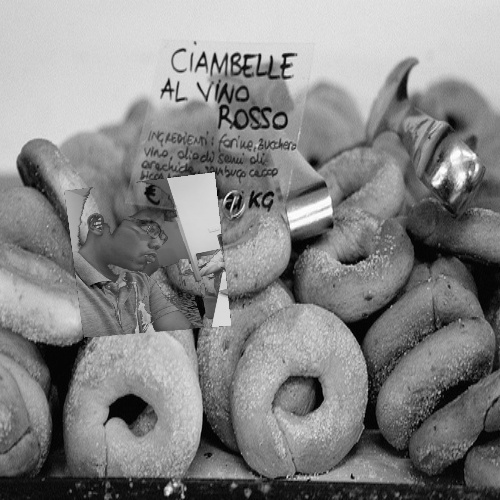 CIAMBELLE
AL VINO
ROSSO
INGREDIENTI: farina, zucchero
vino, olio di semi di
arachide,
€ KG